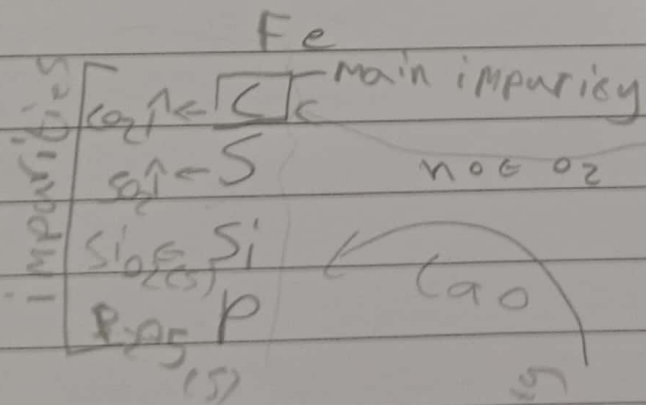 Fe
impurities
CO2↑ ← C main impurity
SO2↑ ← S not O2
SiO2(s) ← Si
CaO
P2O5 P
(s)